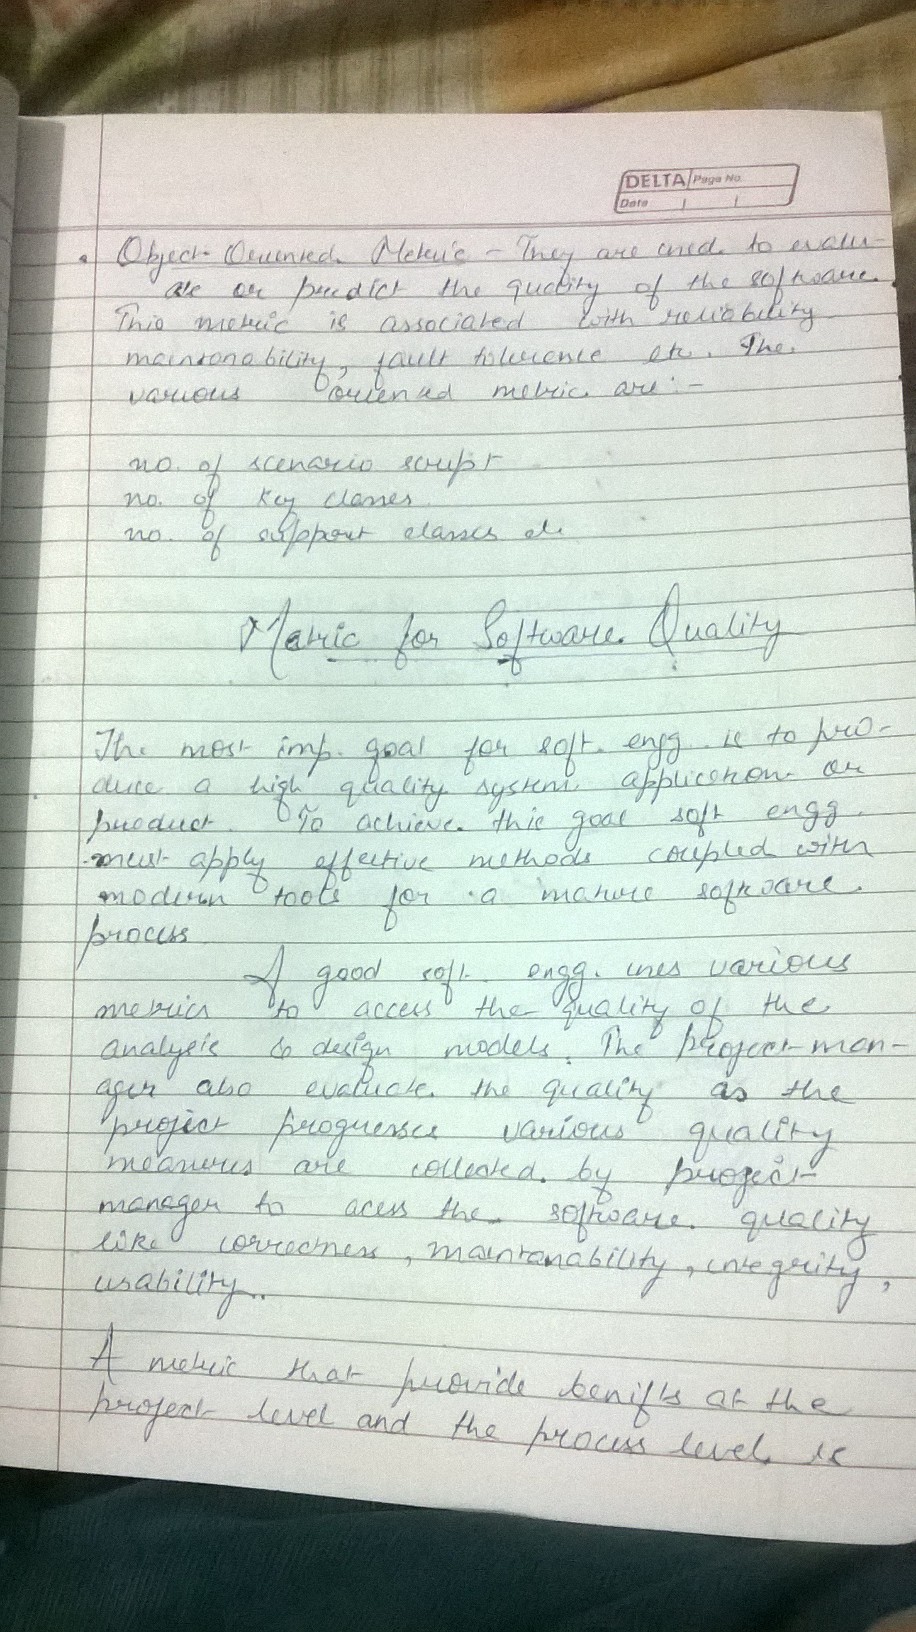 DELTA Page No.
Date
• Object Oriented Metric - They are used to evalu-
ate or predict the quality of the software.
This metric is associated with reliability
maintanability, fault tolerence etc. The
various oriented metric are :-
no. of scenario script
no. of key classes
no. of support classes etc
Metric for Software Quality
The most imp. goal for soft. engg. is to pro-
duce a high quality system, application or
product. To achieve this goal soft engg.
must apply effective methods coupled with
modern tools for a mature software
process
A good soft. engg. uses various
metrics to access the quality of the
analysis & design models. The project man-
ager also evaluate the quality as the
project progresses various quality
measures are collected by project
manager to acess the software quality
like correctness, maintanability, integrity,
usability.
A metric that provide benifts at the
project level and the process level is